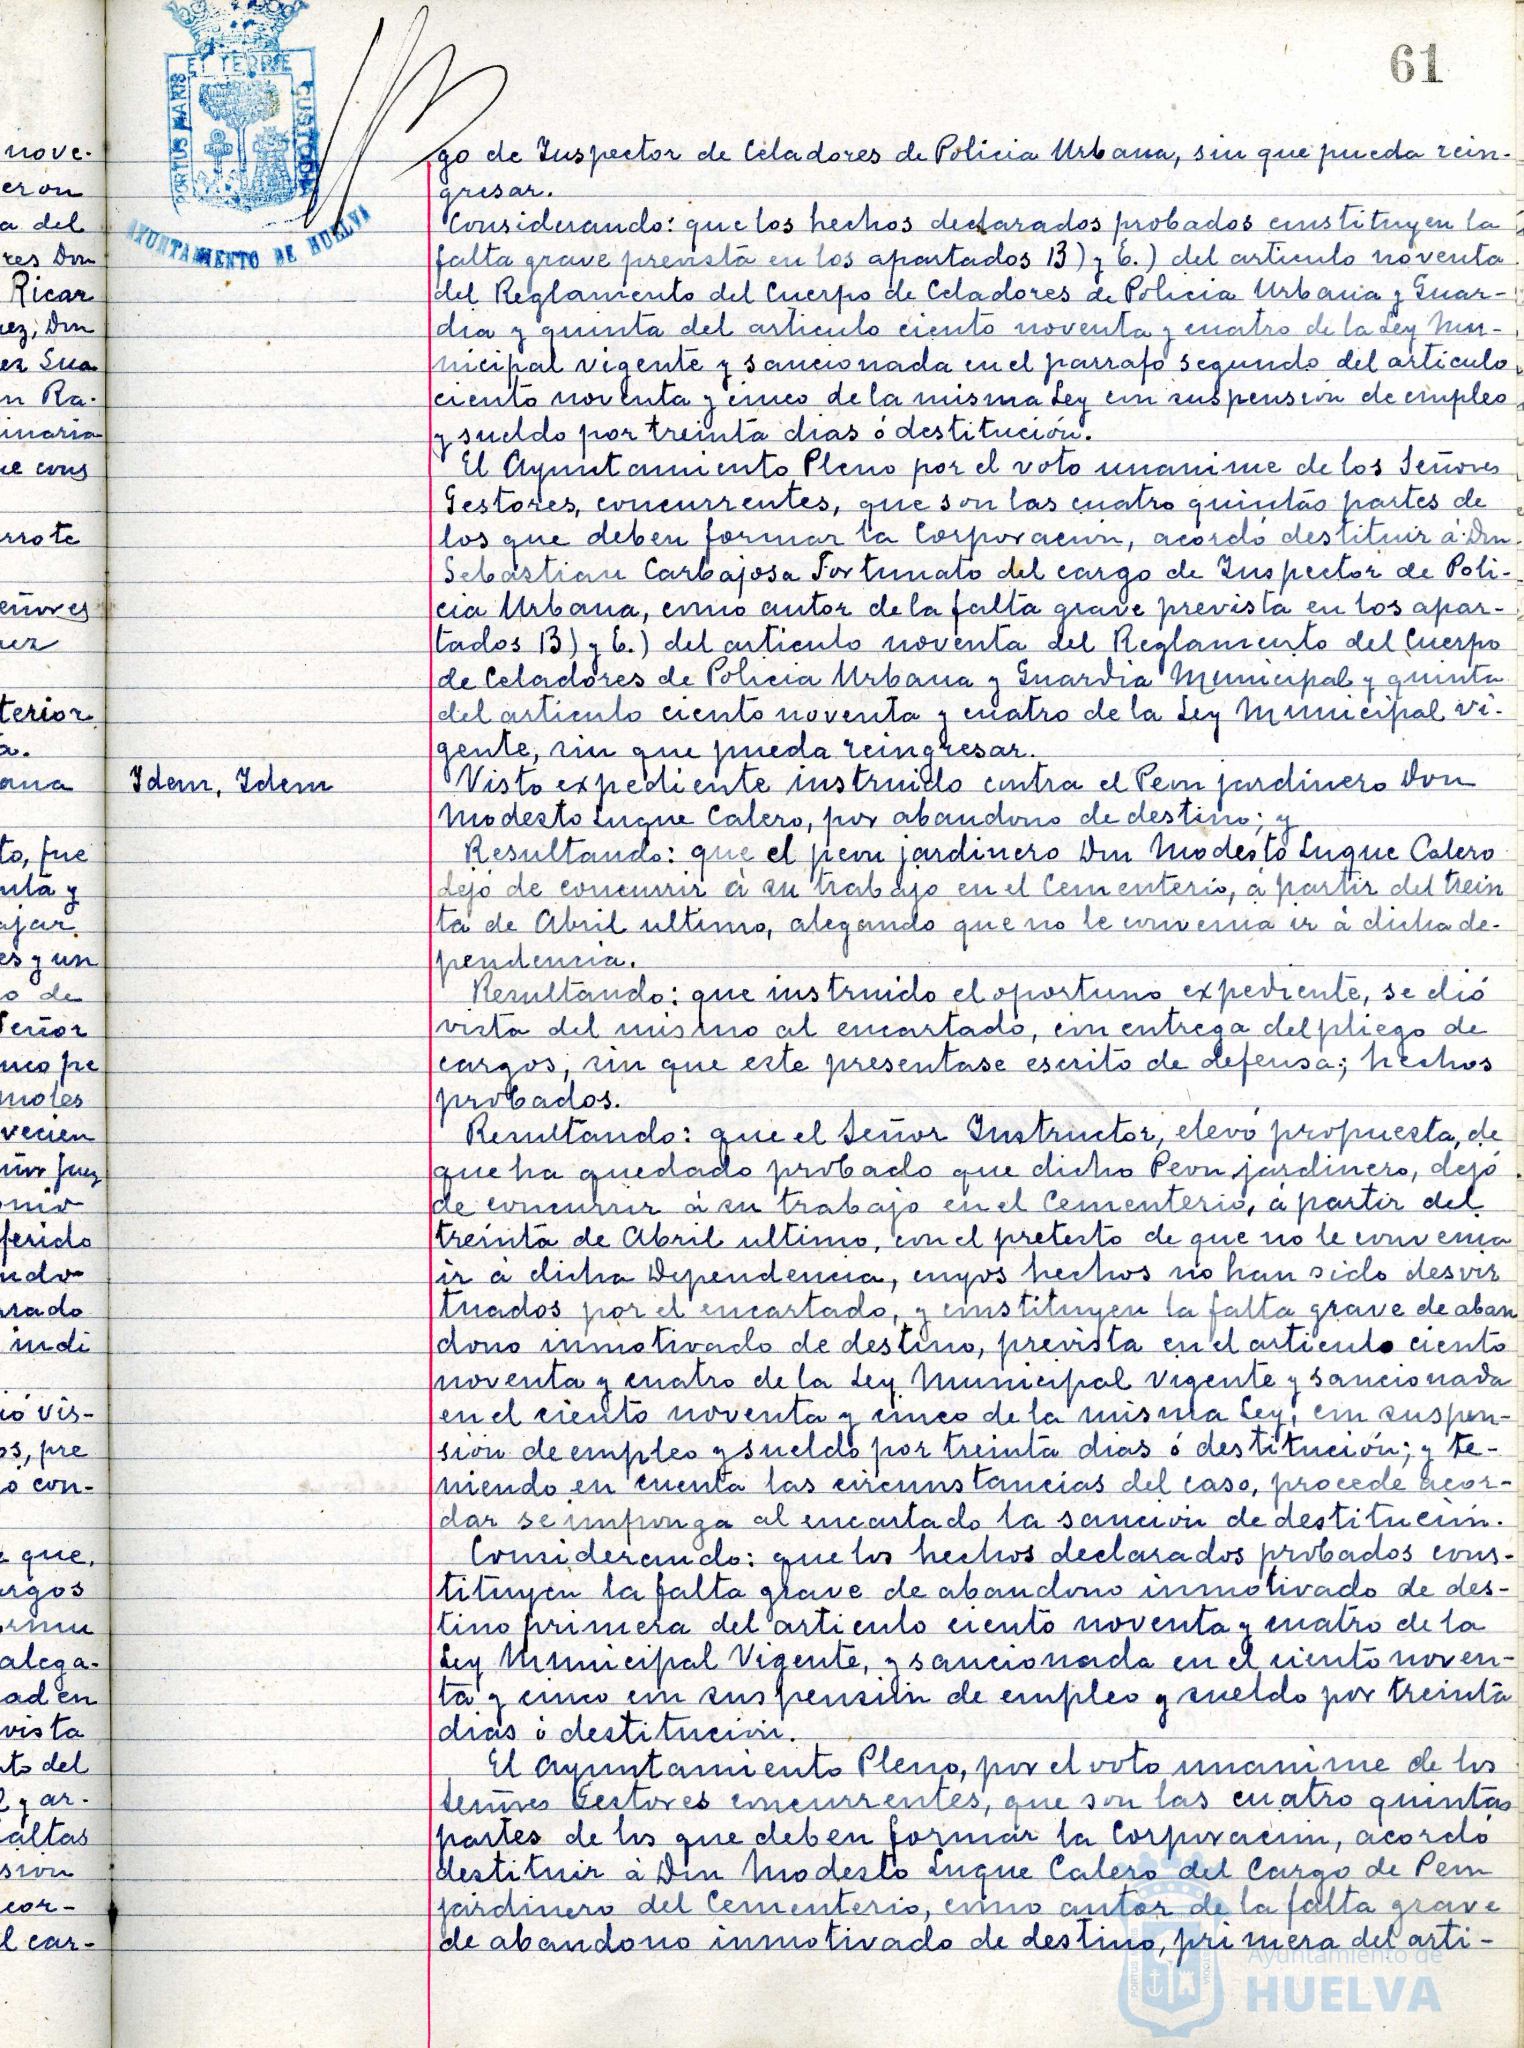 61
PORTUS MARIS ET TERRE CUSTODIA
AYUNTAMIENTO DE HUELVA
nove-
eron
a del
res Don
Ricar
uez, Don
ez Sua
n Ra-
inaria
ue cons
rrote
eñores
uez
terior
a.
ana
to, fue
nta y
ajar
es y un
o de
Señor
nco pe
moles
vecien
ñor Juez
onio
ferido
ndo
rrado
indi
ió vis-
os, pre
o con-
e que,
argos
ormu
alega-
ad en
vista
nto del
l y ar-
faltas
sion
cor-
l car-
go de Inspector de Celadores de Policia Urbana, sin que pueda rein-
gresar.
Considerando: que los hechos declarados probados constituyen la
falta grave prevista en los apartados B) y C.) del articulo noventa
del Reglamento del Cuerpo de Celadores de Policia Urbana y Guar-
dia y quinta del articulo ciento noventa y cuatro de la Ley Mu-
nicipal vigente y sancionada en el parrafo segundo del articulo
ciento noventa y cinco de la misma Ley con suspension de empleo
y sueldo por treinta dias ó destitución.
El Ayuntamiento Pleno por el voto unanime de los Señores
Gestores, concurrentes, que son las cuatro quintas partes de
los que deben formar la Corporacion, acordó destituir á Don
Sebastian Carbajosa Fortunato del cargo de Inspector de Poli-
cia Urbana, como autor de la falta grave prevista en los apar-
tados B) y C.) del articulo noventa del Reglamento del Cuerpo
de Celadores de Policia Urbana y Guardia Municipal y quinta
del articulo ciento noventa y cuatro de la Ley Municipal vi-
gente, sin que pueda reingresar.
Idem, Idem
Visto expediente instruido contra el Peon jardinero Don
Modesto Luque Calero, por abandono de destino; y
Resultando: que el peon jardinero Don Modesto Luque Calero
dejó de concurrir á su trabajo en el Cementerio, á partir del trein
ta de Abril ultimo, alegando que no le convenia ir á dicha de-
pendencia.
Resultando: que instruido el oportuno expediente, se dió
vista del mismo al encartado, con entrega del pliego de
cargos, sin que este presentase escrito de defensa; hechos
probados.
Resultando: que el Señor Instructor, elevó propuesta, de
que ha quedado probado que dicho Peon jardinero, dejó
de concurrir á su trabajo en el Cementerio, á partir del
treinta de Abril ultimo, con el pretesto de que no le convenia
ir á dicha Dependencia, cuyos hechos no han sido desvir
tuados por el encartado, y constituyen la falta grave de aban
dono inmotivado de destino, prevista en el articulo ciento
noventa y cuatro de la Ley Municipal vigente y sancionada
en el ciento noventa y cinco de la misma Ley, con suspen-
sión de empleo y sueldo por treinta dias ó destitución; y te-
niendo en cuenta las circunstancias del caso, procede acor-
dar se imponga al encartado la sancion de destitucion.
Considerando: que los hechos declarados probados cons-
tituyen la falta grave de abandono inmotivado de des-
tino primera del articulo ciento noventa y cuatro de la
Ley Municipal Vigente, y sancionada en el ciento noven-
ta y cinco con suspensión de empleo y sueldo por treinta
dias ó destitucion.
El Ayuntamiento Pleno, por el voto unanime de los
Señores Gestores concurrentes, que son las cuatro quintas
partes de los que deben formar la Corporacion, acordó
destituir á Don Modesto Luque Calero del Cargo de Peon
jardinero del Cementerio, como autor de la falta grave
de abandono inmotivado de destino, primera del arti-
Ayuntamiento de
HUELVA